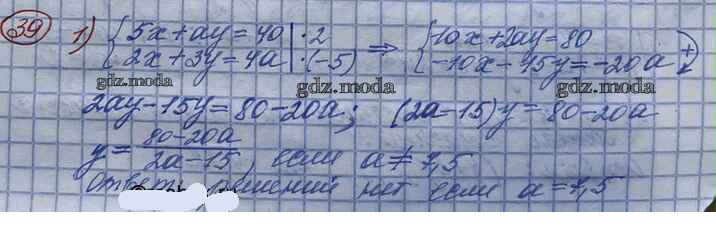 39 1) { 5x + ay = 40 | · 2 ⇒ { 10x + 2ay = 80
2x + 3y = 4a | · (-5) -10x - 15y = -20a +
gdz.moda gdz.moda gdz.moda
2ay - 15y = 80 - 20a; (2a - 15)y = 80 - 20a
y = (80 - 20a)/(2a - 15), если a ≠ 7,5
Ответ: решений нет если a = 7,5